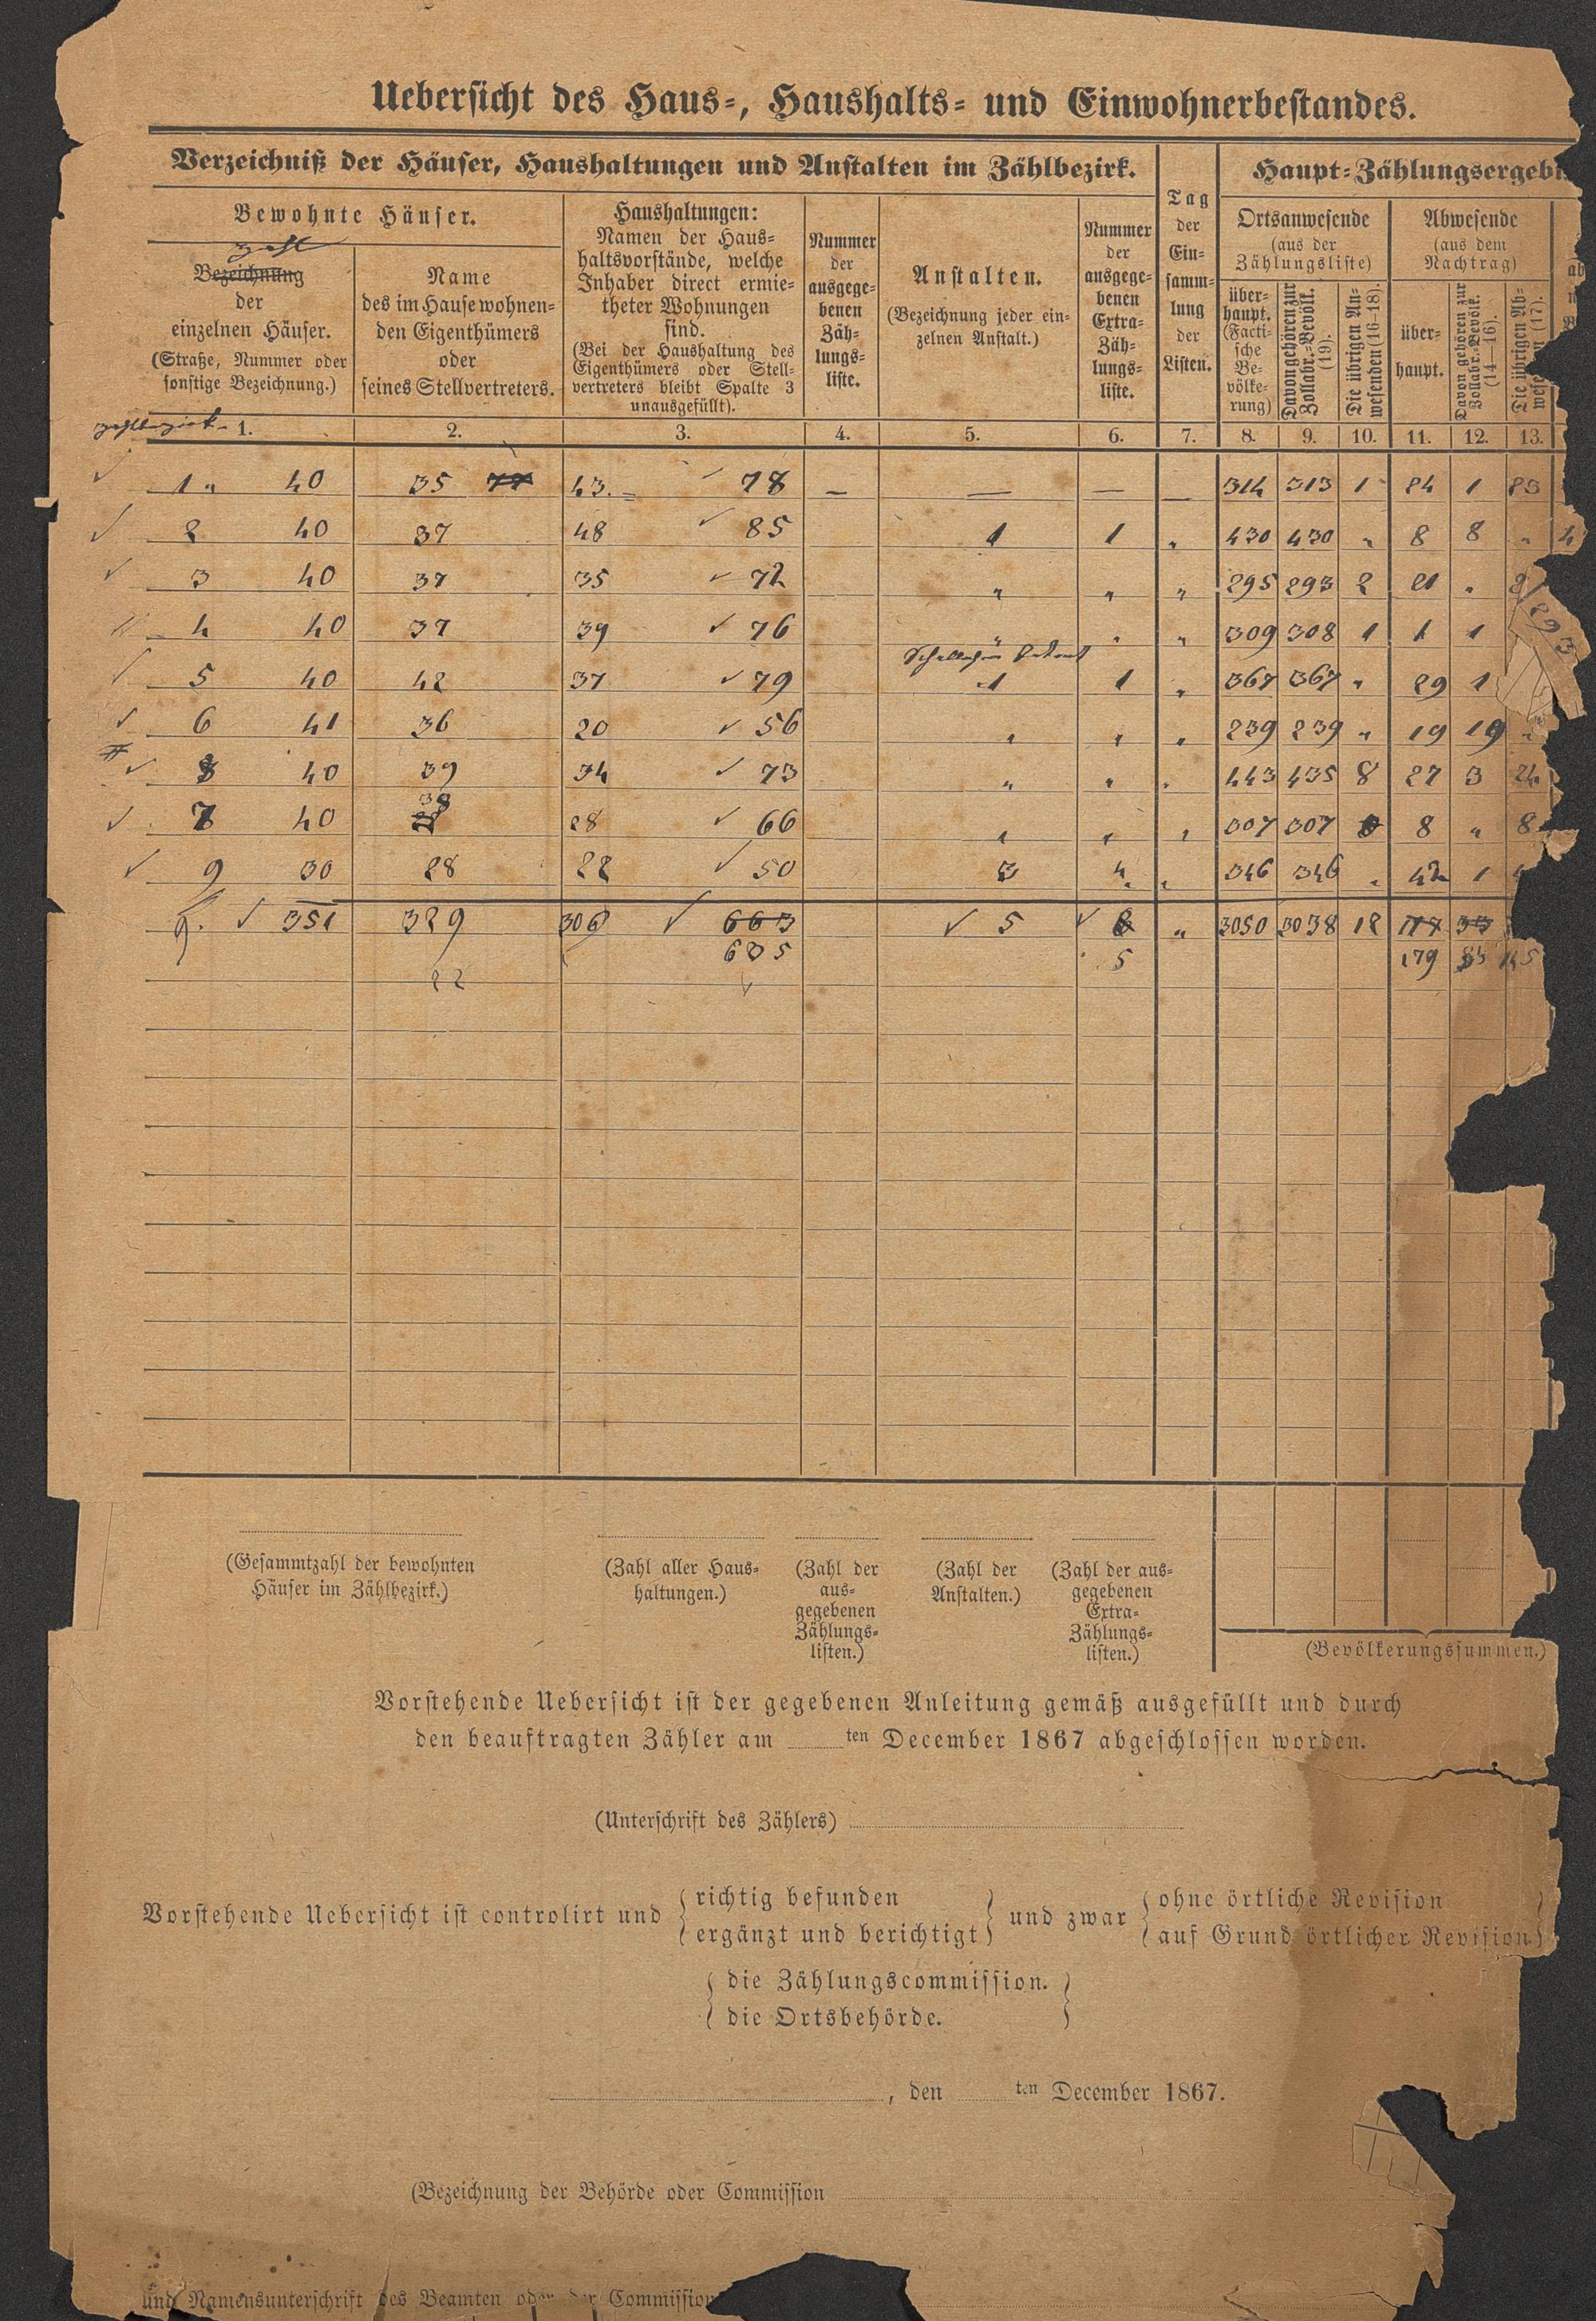 Uebersicht des Haus-, Haushalts- und Einwohnerbestandes.
Verzeichniß der Häuser, Haushaltungen und Anstalten im Zählbezirk.
Haupt-Zählungsergebn
Bewohnte Häuser.
Zahl
Bezeichnung
der
einzelnen Häuser.
(Straße, Nummer oder
sonstige Bezeichnung.)
Name
des im Hause wohnen-
den Eigenthümers
oder
seines Stellvertreters.
Haushaltungen:
Namen der Haus-
haltsvorstände, welche
Inhaber direct ermie-
theter Wohnungen
sind.
(Bei der Haushaltung des
Eigenthümers oder Stell-
vertreters bleibt Spalte 3
unausgefüllt).
Nummer
der
ausgege-
benen
Zäh-
lungs-
liste.
Anstalten.
(Bezeichnung jeder ein-
zelnen Anstalt.)
Nummer
der
ausgege-
benen
Extra-
Zäh-
lungs-
liste.
Tag
der
Ein-
samm-
lung
der
Listen.
Ortsanwesende
(aus der
Zählungsliste)
über-
haupt.
(Facti-
sche
Be-
völke-
rung)
Davon gehören zur
Zollabr.-Bevölk.
(19).
Die übrigen An-
wesenden (16–18).
Abwesende
(aus dem
Nachtrag)
über-
haupt.
Davon gehören zur
Zollabr.-Bevölk.
(14–16).
Die übrigen Ab-
wesen (17).
Zählbezirk 1. 2. 3. 4. 5. 6. 7. 8. 9. 10. 11. 12. 13.
✓ 1 " 40 35 77 43. = ✓ 78 — — — — 314 313 1 24 1 23
✓ 2 40 37 48 ✓ 85 1 1 " 430 430 " 8 8 " 4
✓ 3 40 37 35 ✓ 72 " " " 295 293 2 21 " 2
4 40 37 39 ✓ 76 " " " 309 308 1 1 1
✓ 5 40 42 37 ✓ 79 1 1 " 367 367 " 29 1
293
✓ 6 41 36 20 ✓ 56 " " " 239 239 " 19 19 "
✓ 8 40 39 34 ✓ 73 " " " 443 435 8 27 3 24
38
✓ 7 40 28 28 ✓ 66 " " " 307 307 0 8 " 8
✓ 9 30 28 22 ✓ 50 3 4 " 346 346 " 42 1 4
9. ✓ 351 329 306 ✓ 663 ✓ 5 ✓ 6 " 3050 3038 12 33
635 5 179 145
22 ✓
(Gesammtzahl der bewohnten
Häuser im Zählbezirk.)
(Zahl aller Haus-
haltungen.)
(Zahl der
aus-
gegebenen
Zählungs-
listen.)
(Zahl der
Anstalten.)
(Zahl der aus-
gegebenen
Extra-
Zählungs-
listen.)
(Bevölkerungssummen.)
Vorstehende Uebersicht ist der gegebenen Anleitung gemäß ausgefüllt und durch
den beauftragten Zähler am ten December 1867 abgeschlossen worden.
(Unterschrift des Zählers)
Vorstehende Uebersicht ist controlirt und {richtig befunden
ergänzt und berichtigt} und zwar {ohne örtliche Revision
auf Grund örtlicher Revision}
{die Zählungscommission.
die Ortsbehörde.}
, den ten December 1867.
(Bezeichnung der Behörde oder Commission
und Namensunterschrift des Beamten oder der Commission